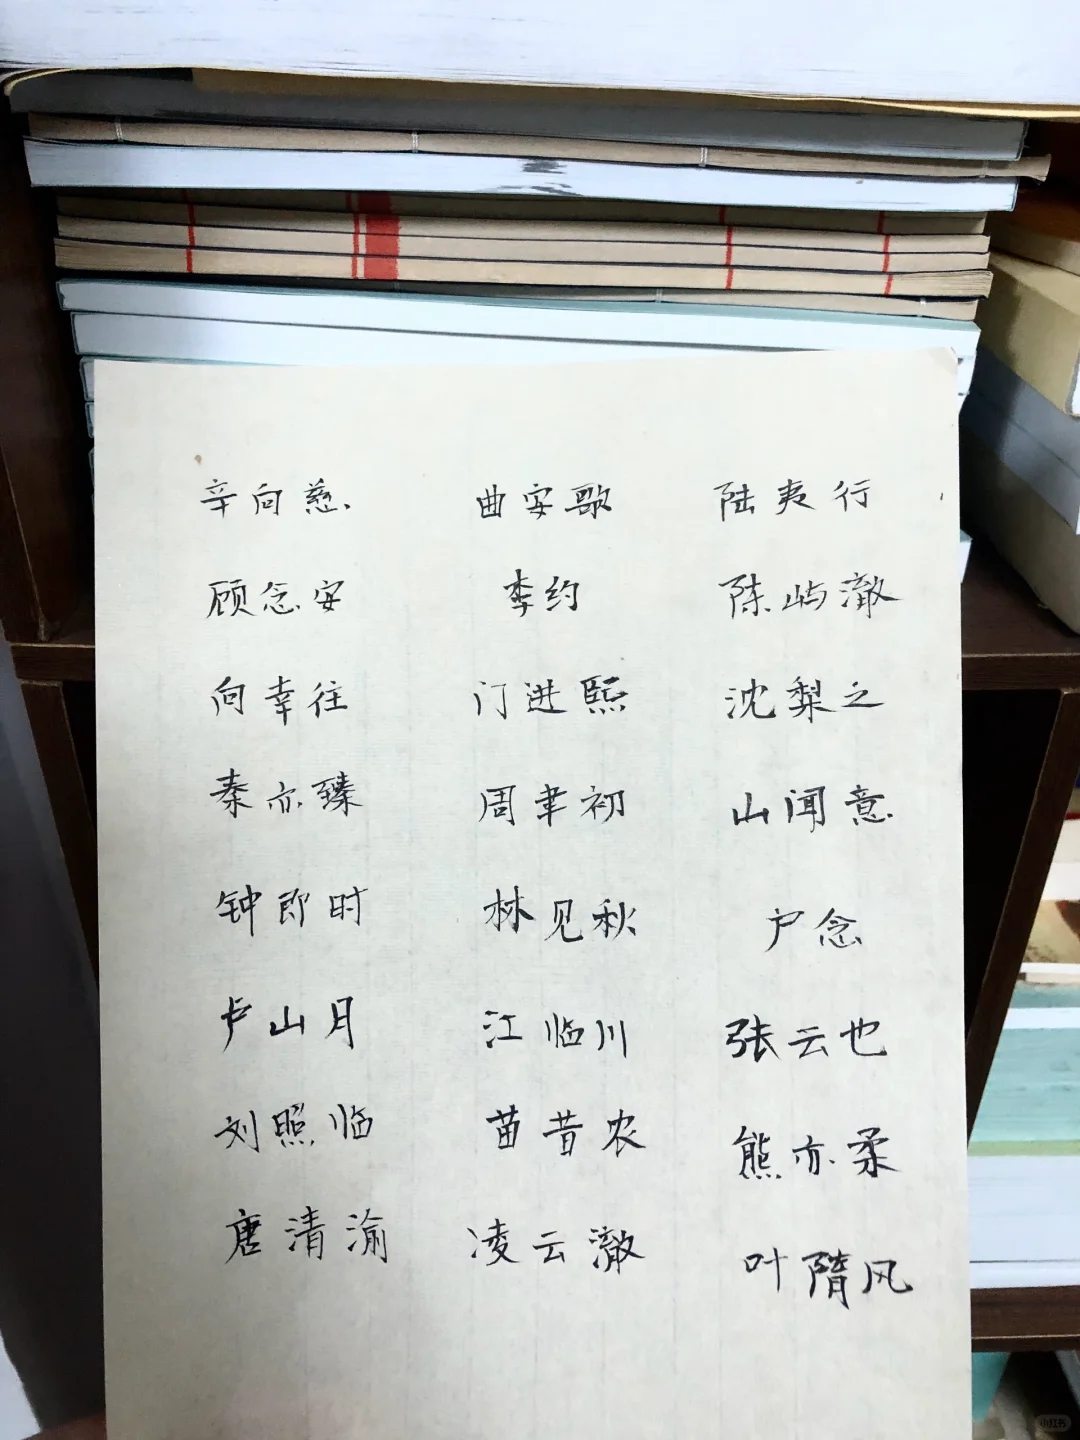 辛向慈 曲安歌 陆夷行
顾念安 李约 陈屿澈
向幸往 门进熙 沈梨之
秦亦臻 周聿初 山闻意
钟即时 林见秋 户念
卢山月 江临川 张云也
刘照临 苗昔农 熊亦柔
唐清渝 凌云澈 叶隋风
小红书